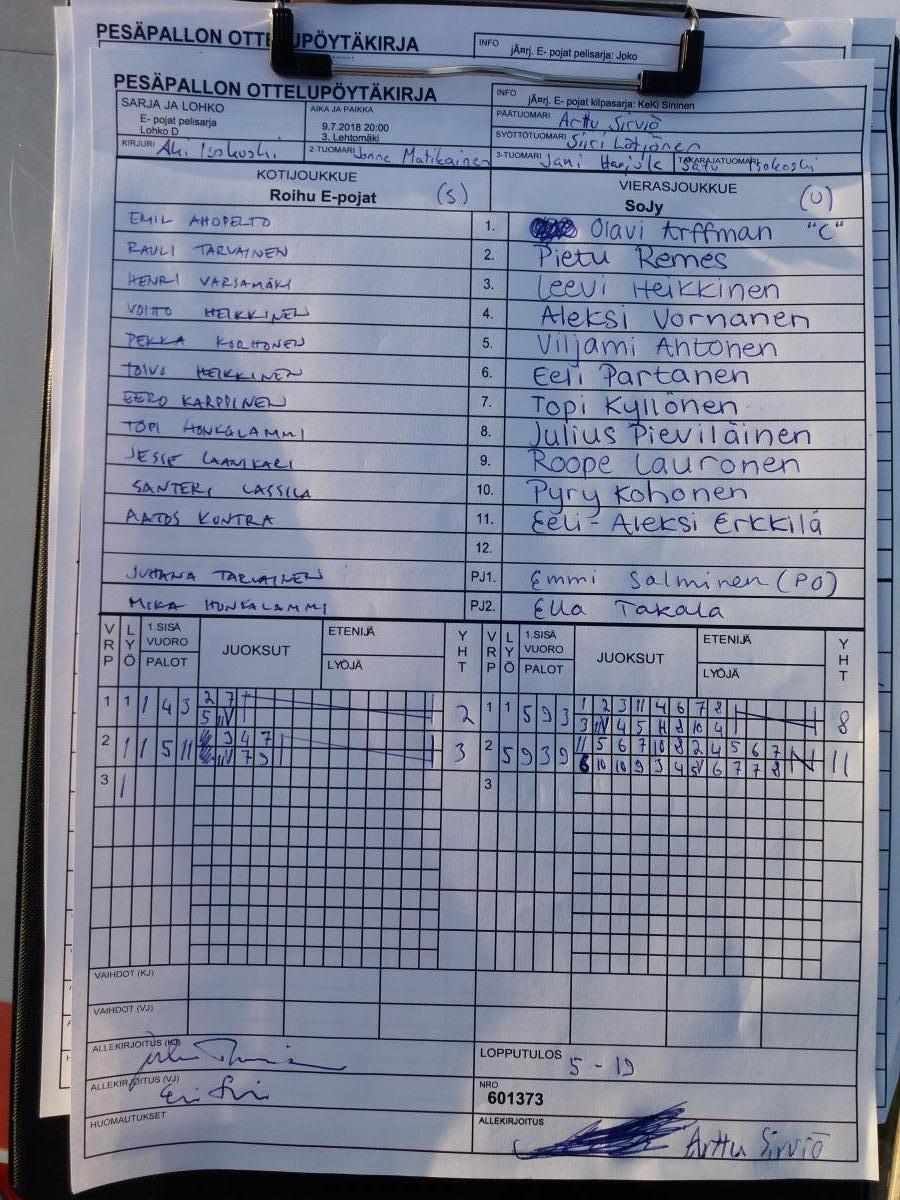 PESÄPALLON OTTELUPÖYTÄKIRJA
INFO jÃ¤rj. E- pojat pelisarja: Joko
PESÄPALLON OTTELUPÖYTÄKIRJA
INFO jÃ¤rj. E- pojat kilpasarja: KeKi Sininen
SARJA JA LOHKO
E- pojat pelisarja
Lohko D
AIKA JA PAIKKA
9.7.2018 20:00
3. Lehtomäki
PÄÄTUOMARI Arttu Sirviö
SYÖTTÖTUOMARI Siiri Lötjönen
KIRJURI Aki Isokoski
2-TUOMARI Jonne Matikainen
3-TUOMARI Jani Harjula
TAKARAJATUOMARI Satu Isokoski
KOTIJOUKKUE
Roihu E-pojat (S)
VIERASJOUKKUE
SoJy (U)
EMIL AHOPELTO 1. Olavi Arffman "C"
RAULI TARVAINEN 2. Pietu Remes
HENRI VARSAMÄKI 3. Leevi Heikkinen
VOITTO HEIKKINEN 4. Aleksi Vornanen
PEKKA KORHONEN 5. Viljami Ahtonen
TOIVO HEIKKINEN 6. Eeli Partanen
EERO KARPPINEN 7. Topi Kyllönen
TOPI HONKALAMMI 8. Julius Pieviläinen
JESSE LAANIKARI 9. Roope Lauronen
SANTERI LASSILA 10. Pyry Kohonen
AATOS KONTRA 11. Eeli-Aleksi Erkkilä
12.
JUHANA TARVAINEN PJ1. Emmi Salminen (PO)
MIKA HONKALAMMI PJ2. Ella Takala
VRP LYÖ 1.SISÄ VUORO PALOT JUOKSUT ETENIJÄ LYÖJÄ YHT VRP LYÖ 1.SISÄ VUORO PALOT JUOKSUT ETENIJÄ LYÖJÄ YHT
1 1 1 4 3 2 7 2 1 1 5 9 3 1 2 3 11 4 6 7 8 8
2 1 1 5 11 3 4 7 3 2 5 9 3 9 11 5 6 7 10 8 2 4 5 6 7 11
3 1 3
VAIHDOT (KJ)
VAIHDOT (VJ)
ALLEKIRJOITUS (KJ)
LOPPUTULOS 5 - 19
ALLEKIRJOITUS (VJ)
NRO
601373
HUOMAUTUKSET
ALLEKIRJOITUS Arttu Sirviö